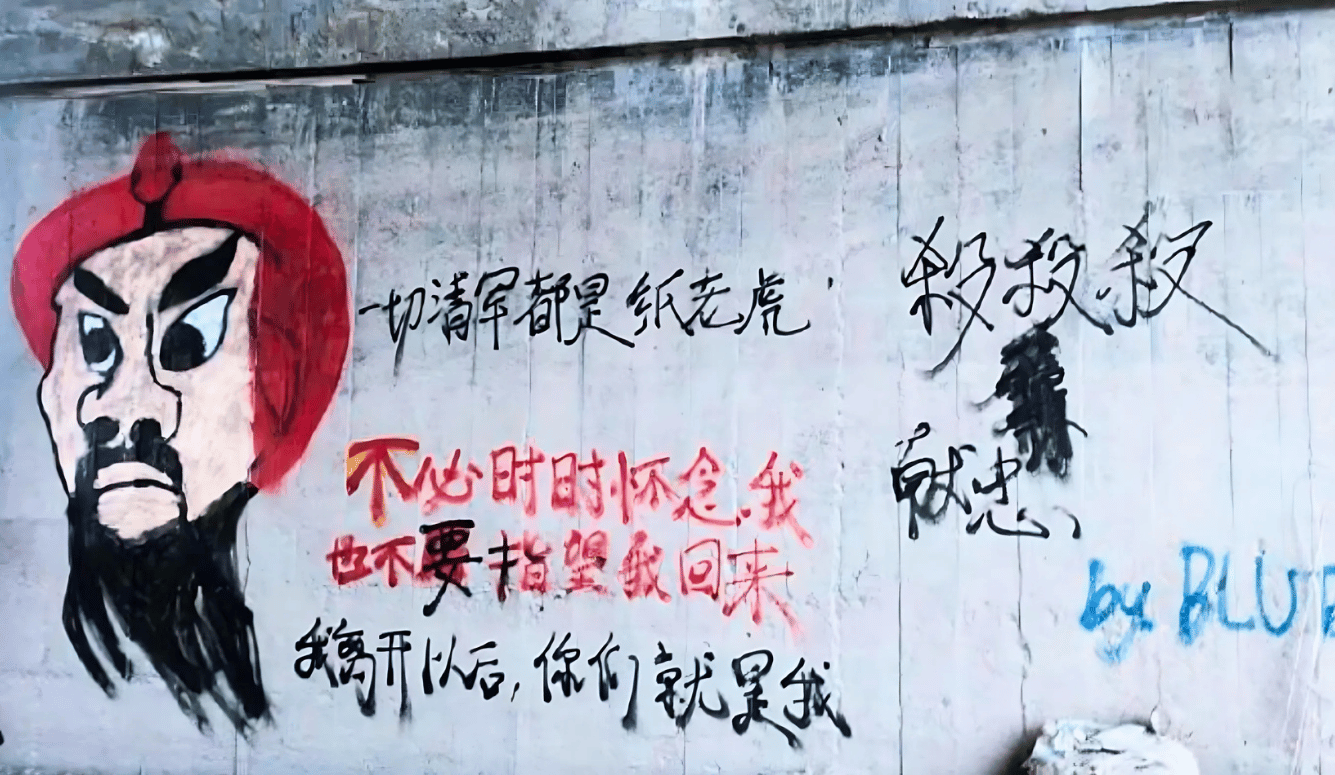 一切清军都是纸老虎，
不必时时怀念我
也不要指望我回来
我离开以后，你们就是我
殺殺殺
献忠
by BLUE